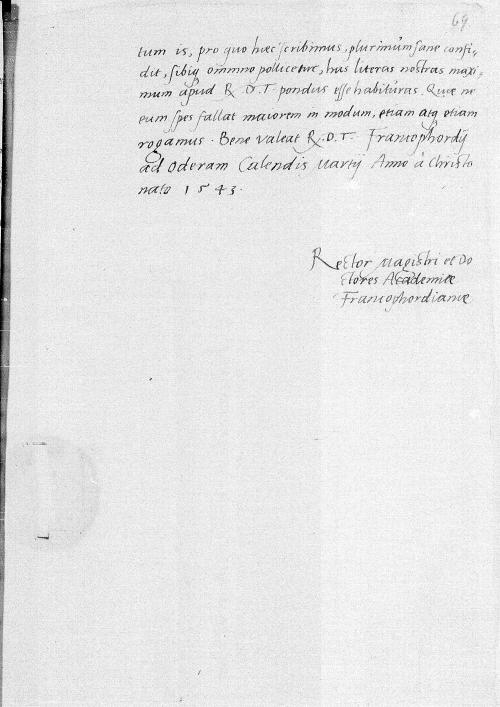 69
tum is, pro quo hæc scribimus, plurimùm sane confi-
dit, sibiq; omnino pollicetur, has literas nostras maxi-
mum apud R. D. T. pondus esse habituras. Quæ ne
eum spes fallat maiorem in modum, etiam atq; etiam
rogamus. Bene valeat R. D. T. Francophordij
ad Oderam Calendis Martij Anno à Christo
nato 1543.
Rector Magistri et Do
ctores Academiæ
Francophordianæ